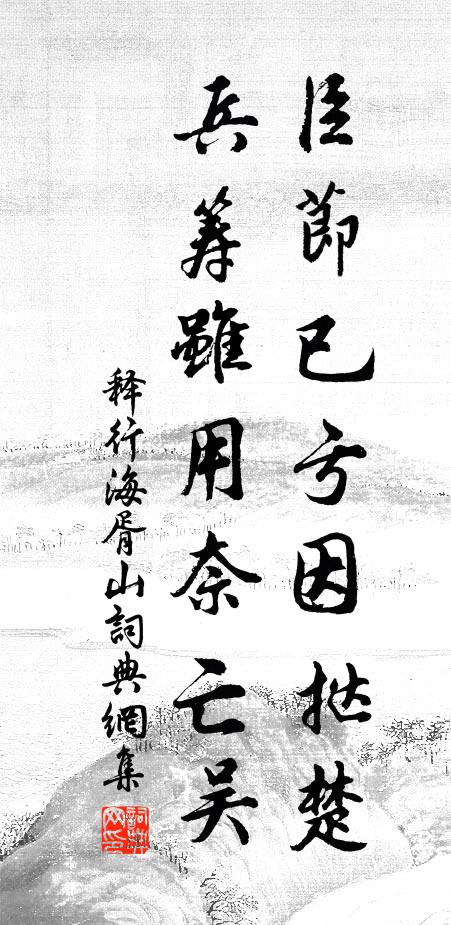 臣節已亏因挞楚
兵筹雖用奈亡吴
释行海胥山詞典網集